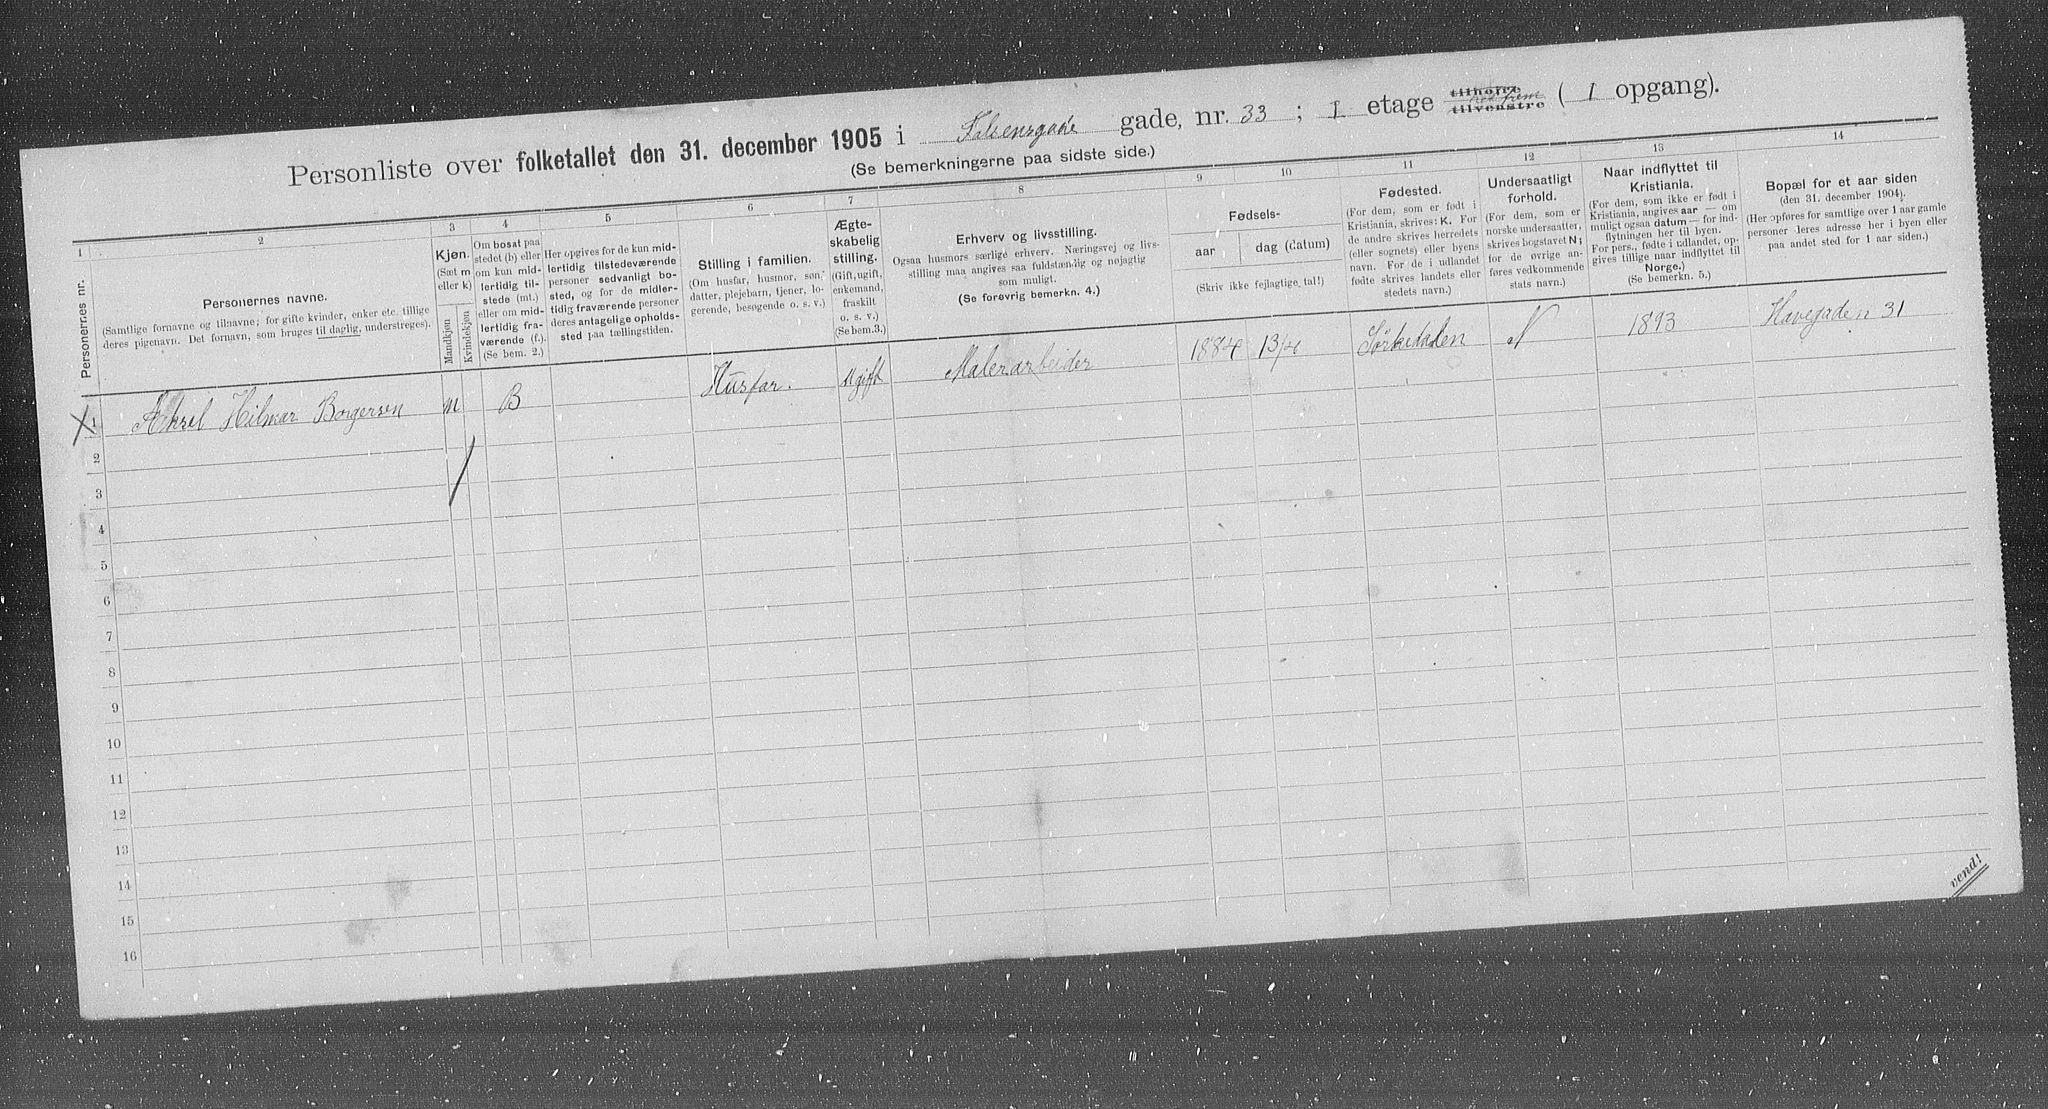 Personliste over folketallet den 31. december 1905 i Falsensgade gade, nr. 33 ; I etage tilhøire tilvenstre ( 1 opgang).
(Se bemerkningerne paa sidste side.)
1 2 3 4 5 6 7 8 9 10 11 12 13 14
Personernes nr.
Personernes navne.
(Samtlige fornavne og tilnavne; for gifte kvinder, enker etc. tillige
deres pigenavn. Det fornavn, som bruges til daglig, understreges).
Kjøn.
(Sæt m
eller k)
Mandkjøn
Kvindekjøn
Om bosat paa
stedet (b) eller
om kun mid-
lertidig til-
stede (mt.)
eller om mid-
lertidig fra-
værende (f.).
(Se bem. 2.)
Her opgives for de kun mid-
lertidig tilstedeværende
personer sedvanligt bo-
sted, og for de midler-
tidig fraværende personer
deres antagelige opholds-
sted paa tællingstiden.
Stilling i familien.
(Om husfar, husmor, søn,
datter, plejebarn, tjener, lo-
gerende, besøgende o. s. v.)
Ægte-
skabelig
stilling.
(Gift, ugift,
enkemand,
fraskilt
o. s. v.)
(Se bem.3.)
Erhverv og livsstilling.
Ogsaa husmors særlige erhverv. Næringsvej og livs-
stilling maa angives saa fuldstændig og nøjagtig
som muligt.
(Se forøvrig bemerkn. 4.)
Fødsels-
aar
dag (datum)
(Skriv ikke fejlagtige tal!)
Fødested.
(For dem, som er født i
Kristiania, skrives: K. For
de andre skrives herredets
(eller sognets) eller byens
navn. For de i udlandet
fødte skrives landets eller
stedets navn.)
Undersaatligt
forhold.
(For dem, som er
norske undersaatter,
skrives bogstavet N;
for de øvrige an-
føres vedkommende
stats navn.)
Naar indflyttet til
Kristiania.
(For dem, som ikke er født i
Kristiania, angives aar — om
muligt ogsaa datum — for ind-
flytningen her til byen.
For pers., fødte i udlandet, op-
gives tillige naar indflyttet til
Norge.)
(Se bemerkn. 5.)
Bopæl for et aar siden
(den 31. december 1904).
(Her opføres for samtlige over 1 aar gamle
personer deres adresse her i byen eller
paa andet sted for 1 aar siden.)
X 1 Aksel Hilmar Borgersen m B Husfar. Ugift Malerarbeider 1884 13/4 Sørkedalen N 1893 Havegaden 31
2
3
4
5
6
7
8
9
10
11
12
13
14
15
16
vend!